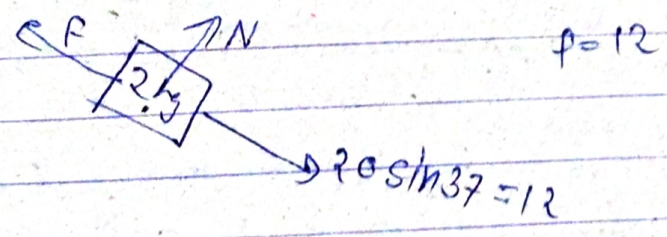 F N f = 12
2kg
20 sin 37 = 12